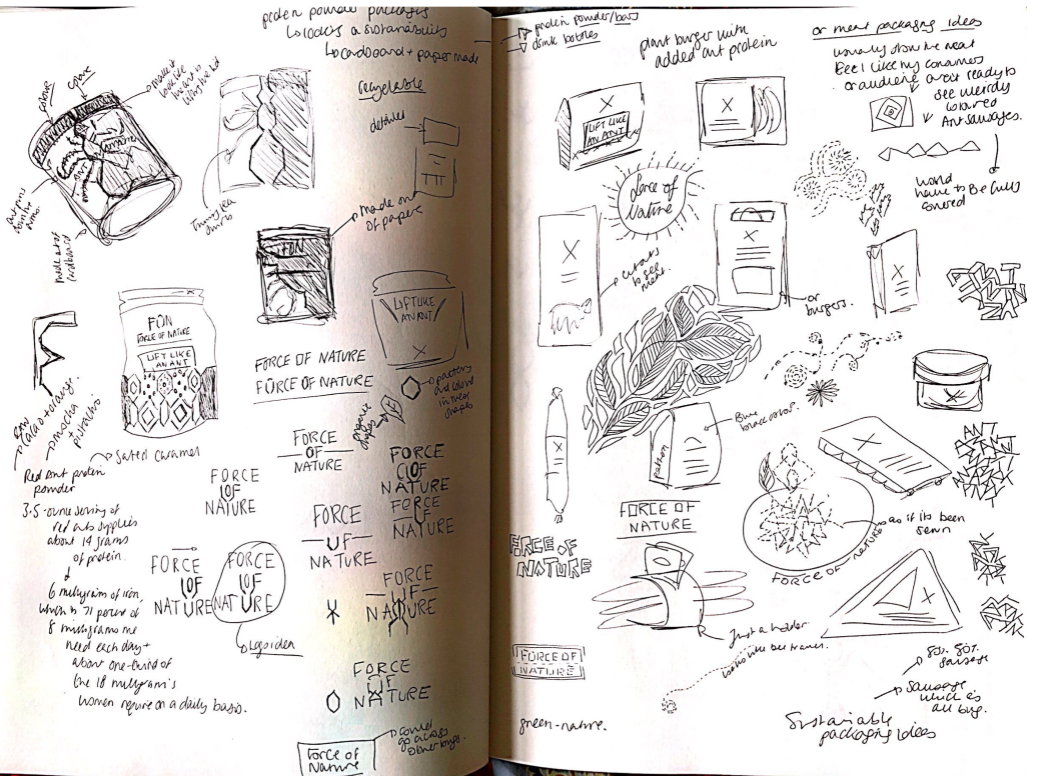 protein powder packages
↳ looking @ sustainability
↳ cardboard + paper made
colour
make it
look like
the ant is
lifting the lid
ant
made out of
cardboard
recyclable
detailed
made out
of paper
FÖN
LIFT LIKE
AN ANT
FÖN
FORCE OF NATURE
LIFT LIKE
AN ANT
cacao + orange
mocha
pistachio
salted caramel
Red Ant protein
powder
3.5-ounce serving of
red ants supplies
about 14 grams
of protein.
6 milligrams of iron,
which is 71 percent of
8 milligrams me
need each day +
about one-third of
the 18 milligram's
women require on a daily basis.
FORCE OF NATURE
FORCE OF NATURE
organic
shapes
patterns
and colour
in these
shapes
FORCE
OF
NATURE
FORCE
OF
NATURE
FORCE
OF
NATURE
FORCE
OF
NATURE
FORCE
OF
NATURE
FORCE
OF
NATURE
FORCE
OF
NATURE
Logo idea
FORCE
OF
NATURE
FORCE
OF
NATURE
Force of
Nature
could
go across
other bugs.
protein powder/bars
drink bottles
plant burger with
added ant protein
or meat packaging ideas
usually show the meat
Feel like my consumers
or audience arent ready to
see weirdly
coloured
Ant sausages.
would
have to Be fully
covered
LIFT LIKE
AN ANT
Force of
Nature
cut outs
to see
meat.
or
burgers.
pattern
FORCE OF
NATURE
FORCE OF
NATURE
FORCE OF NATURE
as if its been
sewn
Just a holder
FORCE OF
NATURE
green-nature.
80% 80%
sausage
Sausage
which is
all bug.
Sustainable
packaging ideas